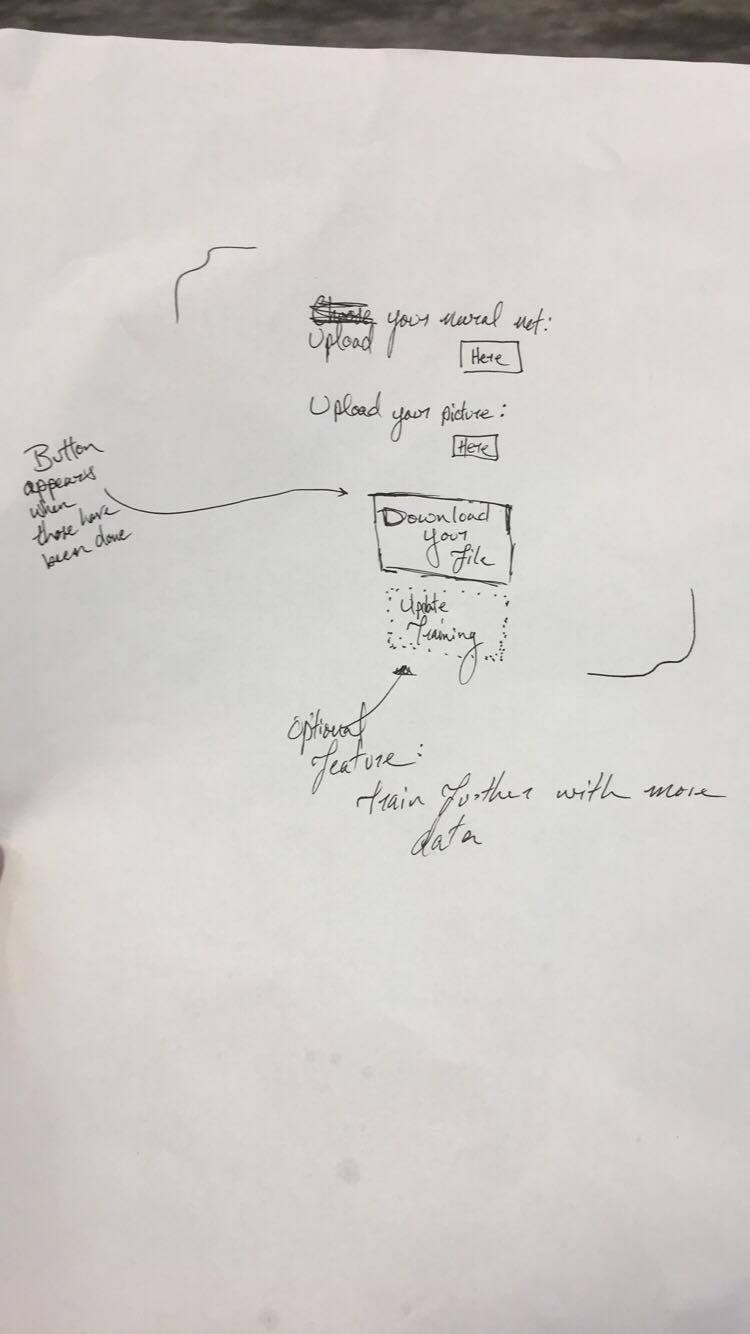 Choose your neural net:
Upload
Here
Upload your picture:
Here
Button
appears
when
those have
been done
Download
your
file
Update
Training
Optional
feature:
train further with more
data